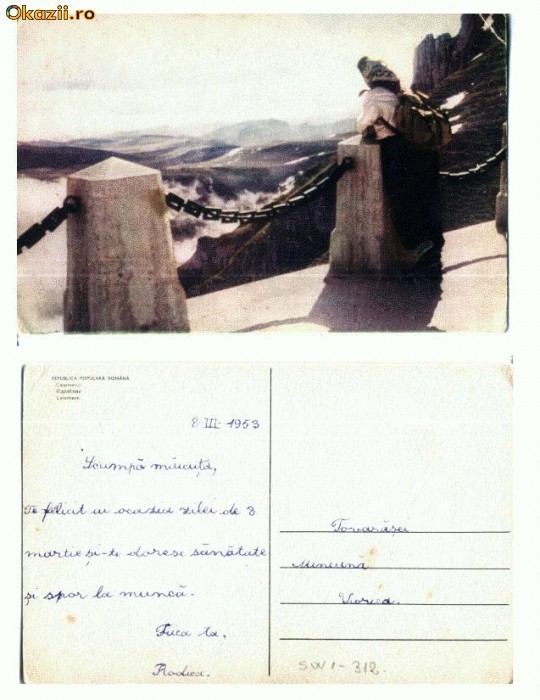 Okazii.ro
REPUBLICA POPULARĂ ROMÂNĂ
8-III-1953
Scumpă măicuță,
Te felicit cu ocazia zilei de 8
martie și-ți doresc sănătate
și spor la muncă.
Fiica ta,
Rodica.
Tovarășei
Viorica.
SW1-312